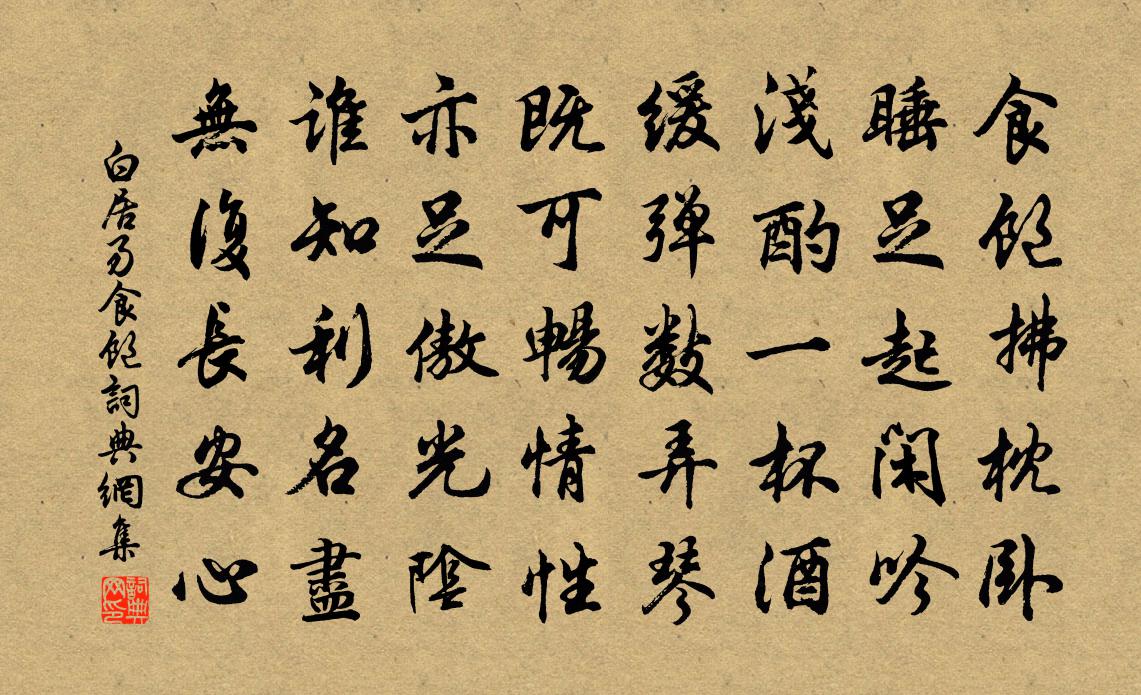 食飽拂枕卧
睡足起閑吟
淺酌一杯酒
缓弹數弄琴
既可暢情性
亦足傲光陰
誰知利名盡
無復長安心
白居易食飽詞典網集
詞典网印